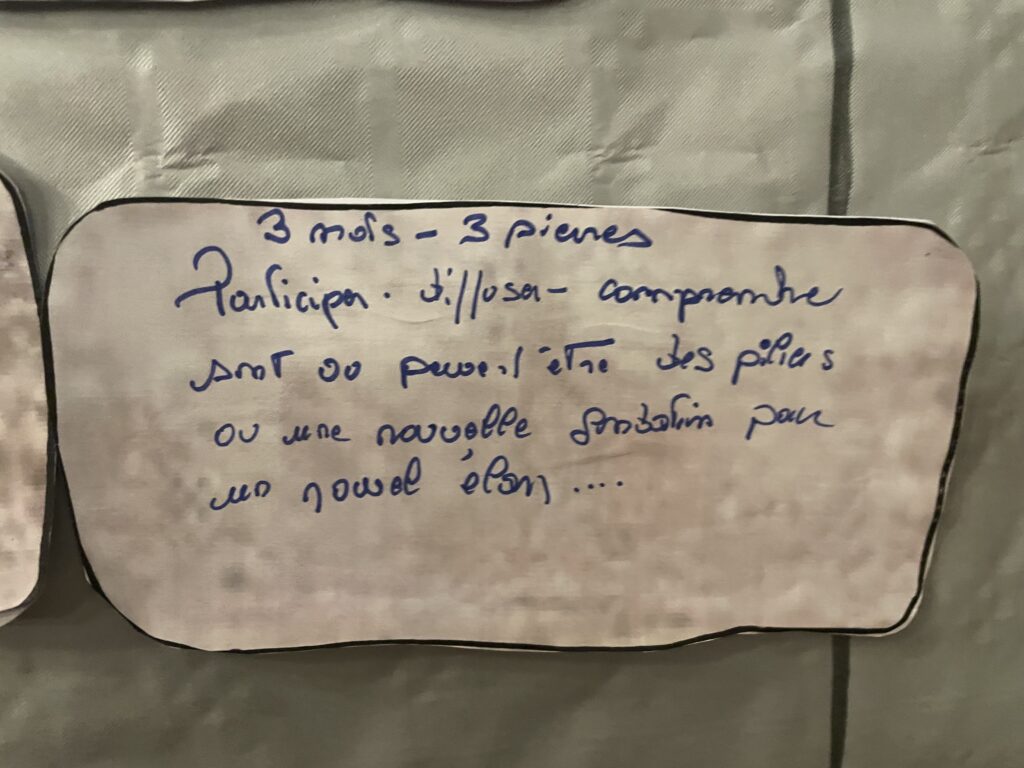 3 mois - 3 pierres
Participer. diffuser - comprendre
sont ou peuvent être des piliers
ou une nouvelle fondation pour
un nouvel élan ....